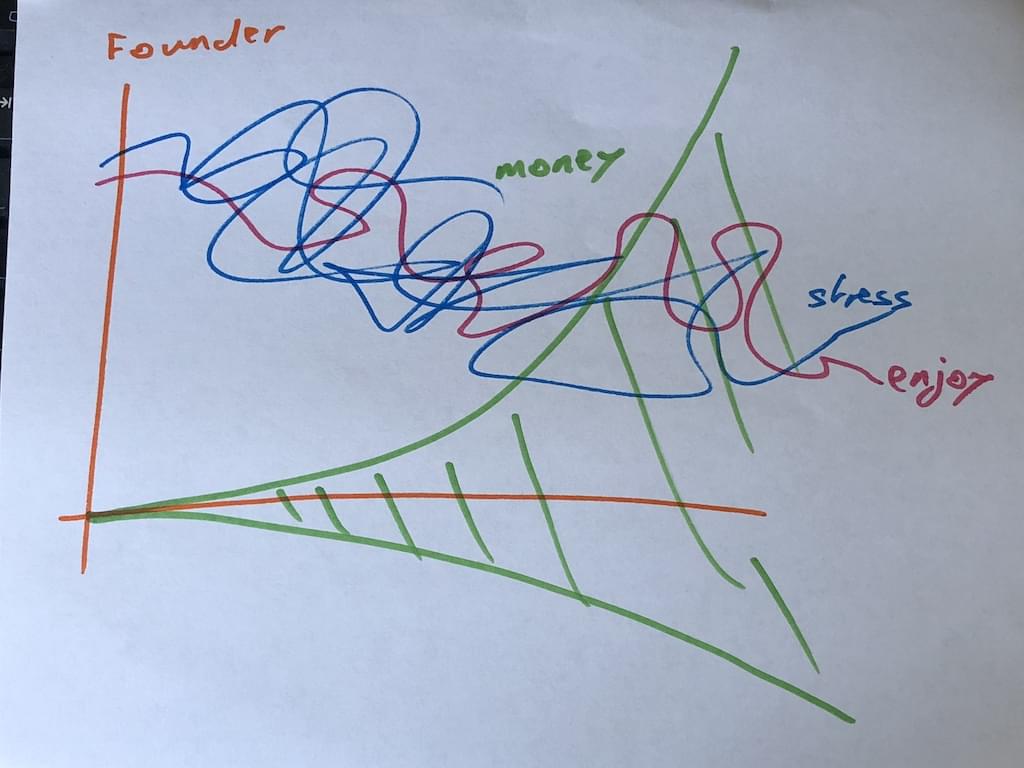 Founder
money
stress
enjoy